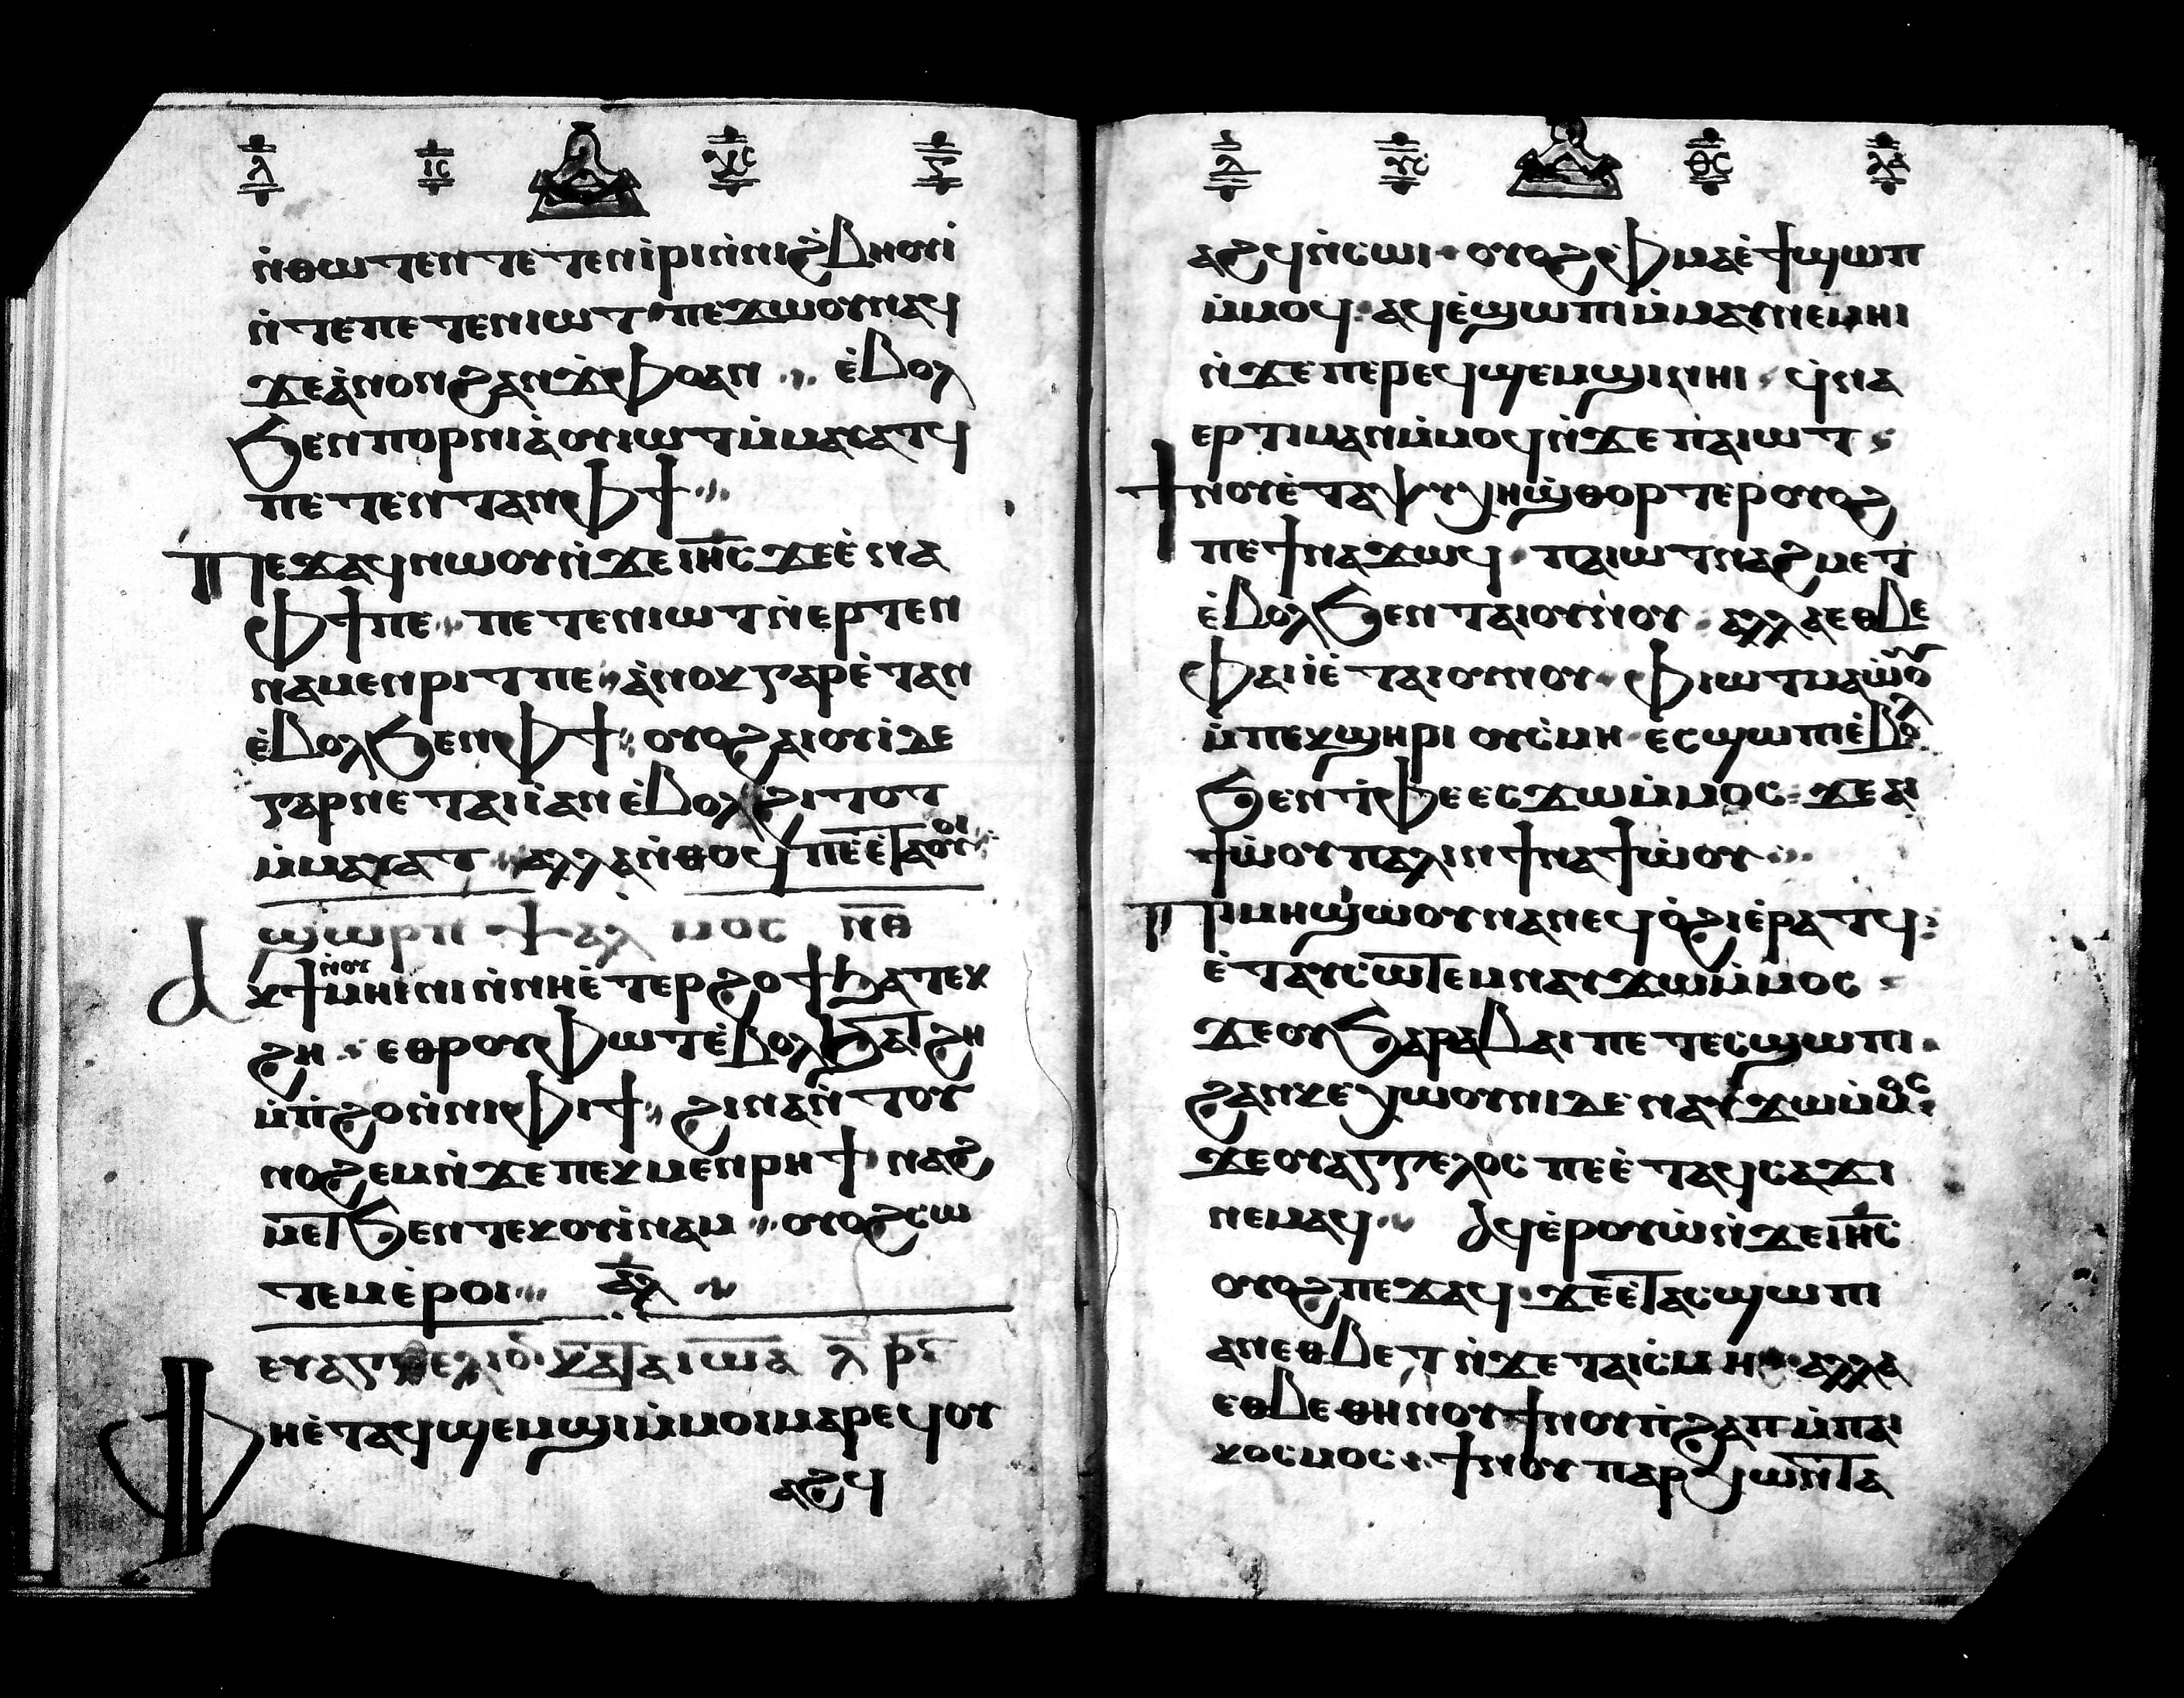 ⲗ ⲓⲥ ⲩⲥ ⲋ
ⲛ̀ⲑⲱⲧⲉⲛⲧⲉⲧⲉⲛⲓ̀ⲣⲓⲛ̀ⲛⲓϩⲃⲏⲟⲩⲓ̀
ⲛ̀ⲧⲉⲡⲉⲧⲉⲛⲓⲱⲧ ⲡⲉϫⲱⲟⲩⲛⲁϥ
ϫⲉⲁ̀ⲛⲟⲛϩⲁⲛϫ̀ⲫⲟⲁⲛ ⲉ̀ⲃⲟⲗ
ϧⲉⲛⲡⲟⲣⲛⲓⲁ̀ⲟⲩⲓⲱⲧⲙ̀ⲙⲁⲩⲁⲧϥ
ⲡⲉⲧⲉⲛⲧⲁⲛⲫϯ
ⲡⲉϫⲁϥⲛⲱⲟⲩⲛ̀ϫⲉⲓⲏ̅ⲥ̅ϫⲉⲉ̀ⲛⲁ
ⲫϯⲡⲉ ⲡⲉⲧⲉⲛⲓⲱⲧⲛ̀ⲉⲣⲧⲉⲛ
ⲛⲁⲙⲉⲛⲣⲓⲧⲡⲉ ⲁ̀ⲛⲟⲕⲅⲁⲣⲉ̀ⲧⲁⲛ
ⲉ̀ⲃⲟⲗϧⲉⲛⲫϯ ⲟⲩⲟϩⲁⲓⲟⲩⲓ̀ⲇⲉ
ⲅⲁⲣⲛⲉⲧⲁⲓⲓ̀ⲁⲛⲉ̀ⲃⲟⲗϩⲓⲧⲟⲧ
ⲙ̀ⲙⲁⲩⲁⲧ ⲁⲗⲗⲁⲛ̀ⲑⲟϥⲡⲉⲉ̀ⲧⲁⲟⲩⲟⲓ
ϣⲱⲣⲡ ⲯⲁⲗ ⲙⲟⲥ ⲛ̅ⲑ̅
ⲁⲕϯⲛ̀ⲟⲩⲙⲏⲓⲛⲓⲛ̀ⲛⲏⲉ̀ⲧⲉⲣϩⲟϯϧⲁⲧⲉⲕ
ϩⲏ ⲉⲑⲣⲟⲩⲫⲱⲧⲉ̀ⲃⲟⲗϧⲁⲧϩⲏ
ⲙ̀ⲡ̀ϩⲟⲛ̀ⲛⲓⲫⲓϯ ϩⲓⲛⲁⲛ̀ⲧⲟⲩ
ⲛⲟϩⲉⲙⲛ̀ϫⲉⲡⲉⲕⲙⲉⲛⲣⲏϯ ⲛⲁϩ
ⲙⲉⲧϧⲉⲛⲧⲉⲕⲟⲩⲓ̀ⲛⲁⲙ ⲟⲩⲟϩⲥⲱ
ⲧⲉⲙⲉ̀ⲣⲟⲓ ⲁⲗ
ⲉⲩⲁⲅⲅⲉⲗⲓⲟ ⲕⲁⲧⲁⲓⲱⲁ ⲗ ⲣⲋ
ⲫⲏⲉ̀ⲧⲁϥϣⲉⲙϣⲓⲙ̀ⲙⲟⲓⲙⲁⲣⲉϥⲟⲩ
ⲁϩϥ
ⲗ ⲩⲥ ⲑⲥ
ⲁϩϥⲛ̀ⲥⲱⲓ ⲟⲩⲟϩⲫⲙⲁⲉ̀ϯϣⲱⲡ
ⲙ̀ⲙⲟϥ ⲁϥⲉ̀ϣⲱⲡⲓⲙ̀ⲙⲁⲩⲛⲉⲙⲏⲓ
ⲛ̀ϫⲉⲡⲉⲣⲉϥϣⲉⲙϣⲓⲛⲏⲓ ϥ̀ⲛⲁ
ⲉⲣⲧⲓⲙⲁⲛⲙ̀ⲙⲟϥⲛ̀ϫⲉⲡⲁⲓⲱⲧ
ϯⲛⲟⲩⲉ̀ⲧⲁⲯⲩⲭⲏϣ̀ⲑⲟⲣⲧⲉⲣⲟⲩⲟϩ
ⲡⲉϯⲛⲁϫⲱϥ ⲡⲁⲓⲱⲧⲛⲁϩⲙⲉⲧ
ⲉ̀ⲃⲟⲗϧⲉⲛⲧⲁⲓⲟⲩⲛⲟⲩ ⲁⲗⲗⲁⲉⲑⲃⲉ
ⲫⲁⲓⲓ̀ⲉ̀ⲧⲁⲓⲟⲩⲛⲟⲩ ⲫⲓⲱⲧⲙⲁⲱ̀ⲟⲩ
ⲙ̀ⲡⲉⲕϣⲏⲣⲓ ⲟⲩⲥ̀ⲙⲏ ⲉⲥϣⲱⲡⲓⲉ̀ⲃⲟⲗ
ϧⲉⲛⲧ̀ⲫⲉⲉⲥϫⲱⲙ̀ⲙⲟⲥ ϫⲉⲁⲓ
ϯⲱ̀ⲟⲩⲡⲁⲗⲓⲛϯⲛⲁϯⲱ̀ⲟⲩ
ⲡⲓⲙⲏϣⲱⲟⲩⲛⲁⲛⲉϥⲟ̀ϩⲓⲉ̀ⲣⲁⲧϥ
ⲉ̀ⲧⲁⲩⲥⲱⲧⲉⲙⲛⲁⲩϫⲱⲙ̀ⲙⲟⲥ
ϫⲉⲟⲩϧⲁⲣⲁⲃⲁⲓⲡⲉⲧⲉⲥϣⲱⲡⲓ
ϩⲁⲛⲕⲉⲭⲱⲟⲩⲛⲓⲇⲉ ⲛⲁⲩϫⲱⲙ̀ⲙⲟⲥ
ϫⲉⲟⲩⲁⲅⲅⲉⲗⲟⲥ ⲡⲉⲉ̀ⲧⲁϥⲥⲁϫⲓ
ⲛⲉⲙⲁϥ ⲁϥⲉ̀ⲣⲟⲩⲱ̀ⲛ̀ϫⲉⲓⲏ̅ⲥ̅
ⲟⲩⲟϩⲡⲉϫⲁϥ ϫⲉⲉ̀ⲧⲁⲥϣⲱⲡⲓ
ⲁⲛⲉⲑⲃⲉⲧ ⲛ̀ϫⲉⲧⲁⲓⲥ̀ⲙⲏ ⲁⲗⲗⲁ
ⲉⲑⲃⲉⲑⲏⲛⲟⲩϯⲛⲟⲩⲡ̀ϩⲁⲡⲙ̀ⲡⲁⲓ
ⲕⲟⲥⲙⲟⲥ ϯⲛⲟⲩ ⲡⲁⲣⲭⲱⲛⲧⲁ